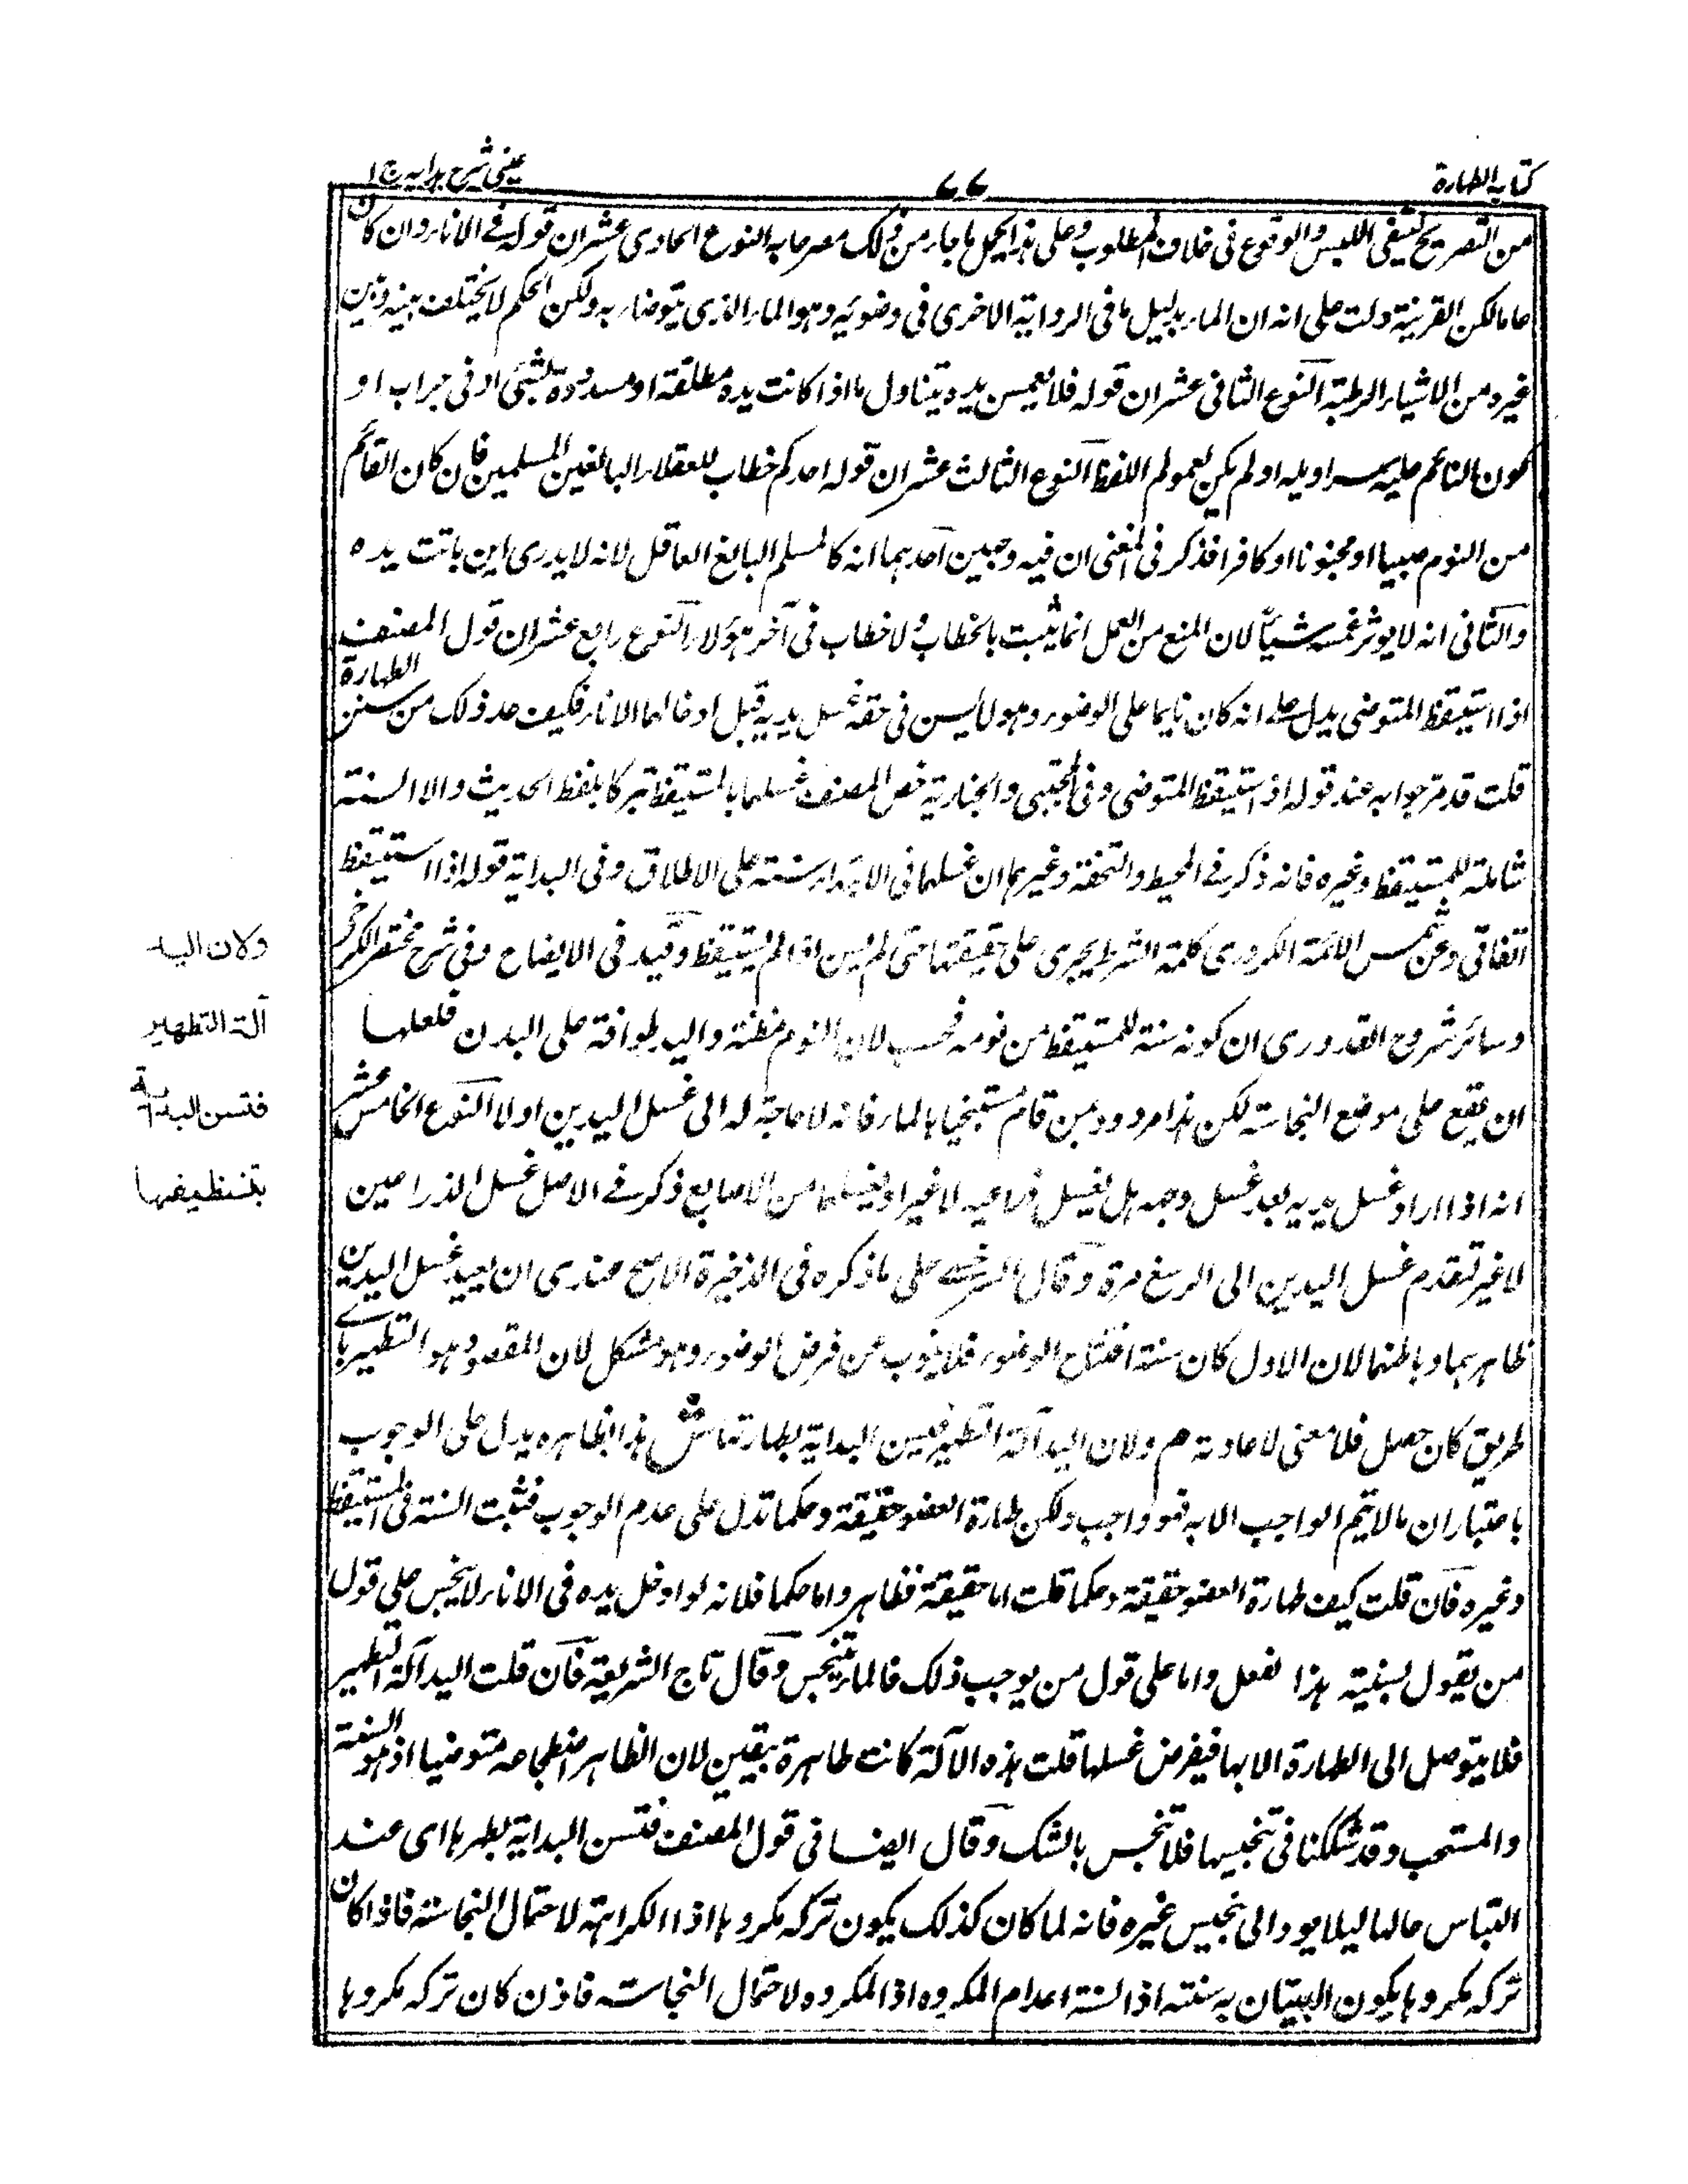 كتاب الطهارة
٦٦
عينى شرح هدايه ج ١
من التصريح لينفى اللبس والوقوع فى خلاف المطلوب وعلى هذا يحمل ما جاء من ذلك مصرحا به النوع الحادى عشر ان قوله فى الاناء وان كان
عاما لكن القرينة دلت على انه اناء الماء بدليل ما فى الرواية الاخرى فى وضوئه وهو الماء الذى يتوضا به ولكن الحكم لا يختلف بينه وبين
غيره من الاشياء الرطبة النوع الثانى عشر ان قوله فلا يغمس يده يتناول ما اذا كانت يده مطلقة او مسدودة بشئ او فى جراب او
كون النائم عليه سراويله او لم يكن لعموم اللفظ النوع الثالث عشر ان قوله احدكم خطاب للعقلاء البالغين المسلمين فان كان القائم
من النوم صبيا او مجنونا او كافرا فذكر فى المغنى ان فيه وجهين احدهما انه كالمسلم البالغ العاقل لانه لا يدرى اين باتت يده
والثانى انه لا يوثر غمسه شيئا لان المنع من الغمس انما يثبت بالخطاب ولا خطاب فى هؤلاء النوع رابع عشر ان قول المصنف
اذا استيقظ المتوضى يدل على انه كان نايما على الوضوء وهو لا يسن فى حقه غسل يديه قبل ادخالهما الاناء فكيف عد ذلك من سنن الطهارة
قلت قد مر جوابه عند قوله اذا استيقظ المتوضى وفى المجتبى والخبازية خص المصنف غسلهما بالمستيقظ تبركا بلفظ الحديث والا السنة
شاملة للمستيقظ وغيره فانه ذكر فى المحيط والتحفة وغيرهما ان غسلهما فى الابتداء سنة على الاطلاق وفى البداية قوله اذا استيقظ
اتفاقى وعن شمس الائمة الكردرى كلمة الشرط يجرى على حقيقتها حتى لم يسن اذا لم يستيقظ وقيد فى الايضاح وفى شرح مختصر الكرخى
وسائر شروح القدورى ان كونه سنة للمستيقظ من نومه فحسب لان النوم مظنة واليد طوافة على البدن فلعلها
ان يقع على موضع النجاسة لكن هذا مردود بمن قام مستنجيا بالماء فانه لا حاجة له الى غسل اليدين اولا النوع الخامس عشر
انه اذا اراد غسل يديه بعد غسل وجهه هل يغسل ذراعيه لا غير او يغسلهما من الاصابع ذكر فى الاصل غسل الذراعين
لا غير لتقدم غسل اليدين الى الرسغ مرة وقال السرخسى على ما ذكره فى الذخيرة الاصح عندى ان يعيد غسل اليدين
ظاهرهما وباطنهما لان الاول كان سنة افتتاح الوضوء فلا ينوب عن فرض الوضوء وهو مشكل لان المقصود هو التطهير باى
طريق كان حصل فلا معنى لاعادته م ولان اليد آلة التطهير فيسن البداية بطهارتها ش هذا بظاهره يدل على الوجوب
باعتبار ان ما لا يتم الواجب الا به فهو واجب ولكن طهارة العضو حقيقة وحكما تدل على عدم الوجوب فثبت السنة فى المستيقظ
وغيره فان قلت كيف طهارة العضو حقيقة وحكما قلت اما حقيقة فظاهر واما حكما فلانه لو ادخل يده فى الاناء لا ينجس على قول
من يقول بسنية هذا لفعل واما على قول من يوجب ذلك فالماء يتنجس وقال تاج الشريعة فان قلت اليد آلة التطهير
فلا يتوصل الى الطهارة الا بها فيفرض غسلها قلت هذه الآلة كانت طاهرة بيقين لان الظاهر اضطجاعه متوضيا اذ هو السنة
والمستحب وقد شككنا فى تنجيسها فلا تنجس بالشك وقال ايضا فى قول المصنف فتسن البداية بطهرها اى عند
التباس حالها ليلا يود الى تنجيس غيره فانه لما كان كذلك يكون تركه مكروها اذا الكراهة لاحتمال النجاسة فاذا كان
تركه مكروها يكون الاتيان به سنة اذا لسنة اعدام المكروه اذا المكروه لاحتمال النجاسة فاذن كان تركه مكروها
ولان اليد
آلة التطهير
فتسن البداية
بتنظيفها